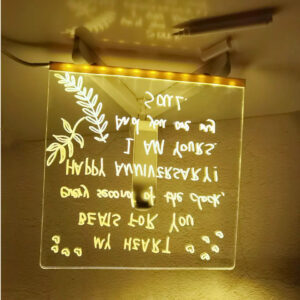 MY HEART
BEATS FOR YOU
Every second of the clock,
HAPPY ANNIVERSARY!
I AM YOURS.
And you are my
SOUL.